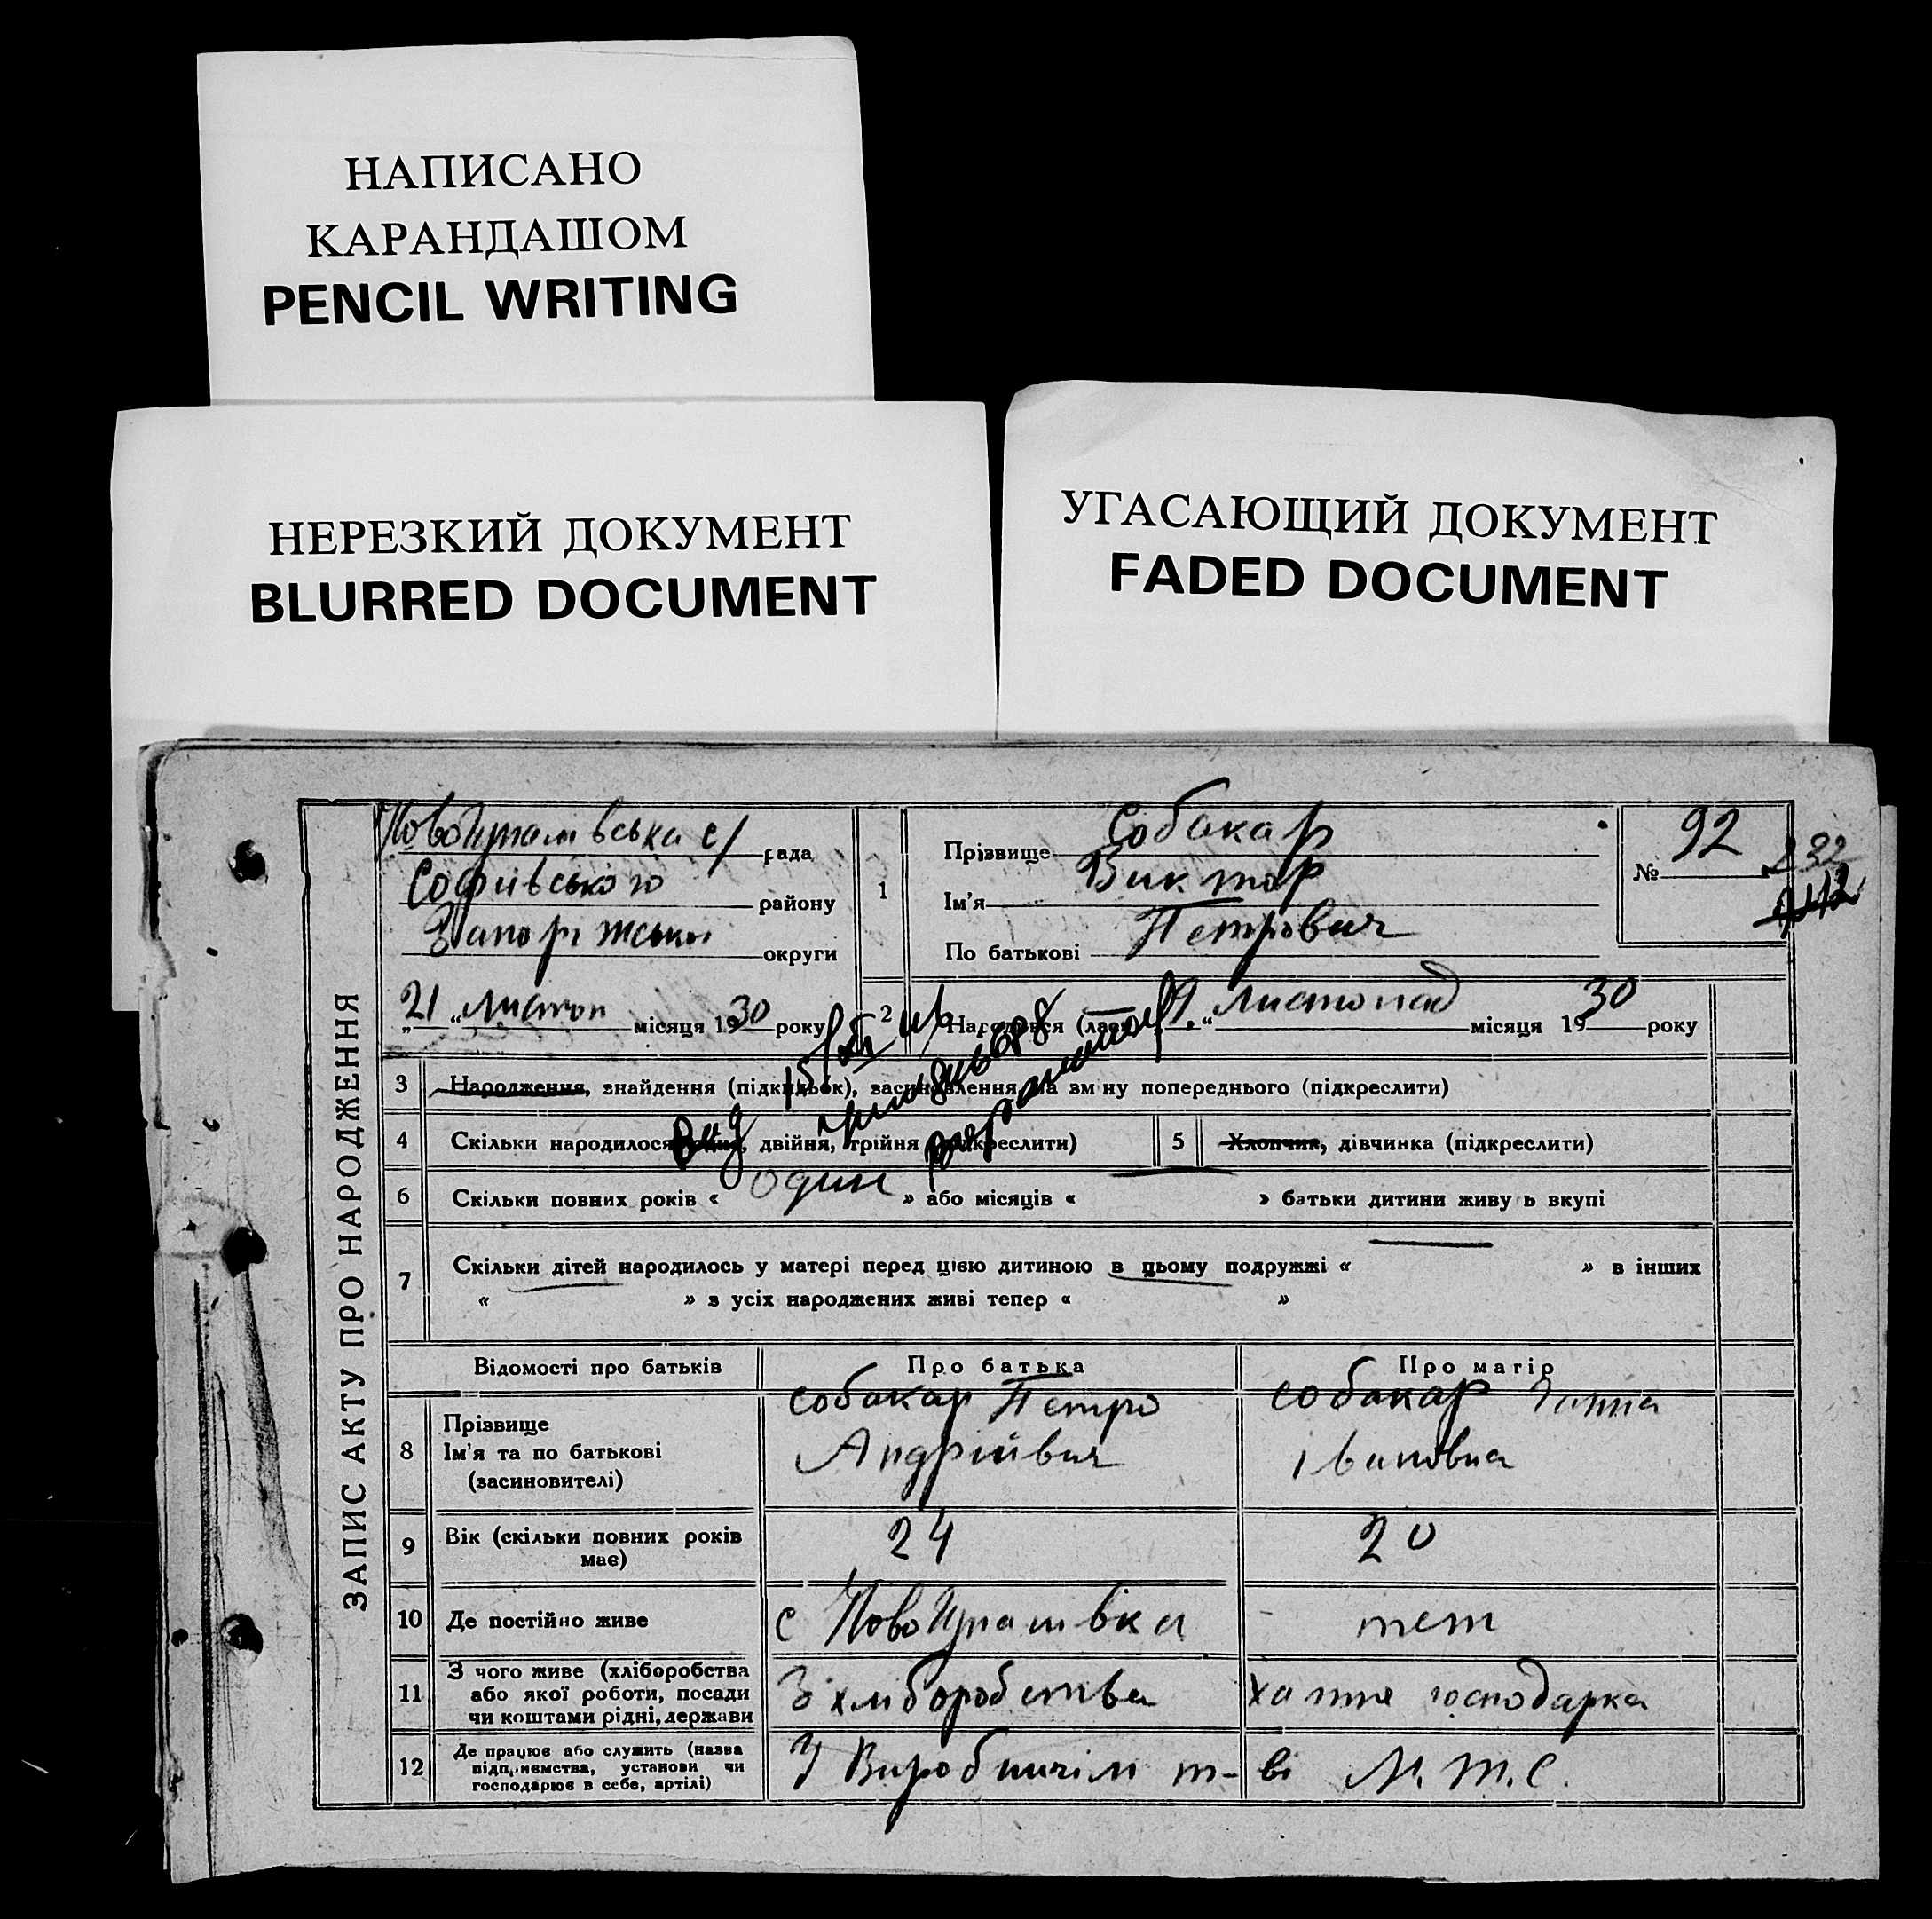 НАПИСАНО
КАРАНДАШОМ
PENCIL WRITING
НЕРЕЗКИЙ ДОКУМЕНТ
BLURRED DOCUMENT
УГАСАЮЩИЙ ДОКУМЕНТ
FADED DOCUMENT
ЗАПИС АКТУ ПРО НАРОДЖЕННЯ
с/рада
Софиівського району
округи
1
Прізвище Собакар
Ім'я Виктор
По батькові Петрович
№ 92
232
„21“ Листоп місяця 1930 року
2 Народився (лась) „9“ Листопад місяця 1930 року
Вид
3 Народження, знайдення (підкидьок), засиновлення на зміну попереднього (підкреслити)
4 Скільки народилося: двійня, трійня (підкреслити)
5 Хлопчик, дівчинка (підкреслити)
6 Скільки повних років « один » або місяців « » батьки дитини живуть вкупі
7 Скільки дітей народилось у матері перед цією дитиною в цьому подружжі « » в інших
« » з усіх народжених живі тепер « »
Відомості про батьків Про батька Про матір
8 Прізвище
Ім'я та по батькові
(засиновителі)
Собакар Петро
Андрійвич
Собакар Ганна
івановна
9 Вік (скільки повних років
має)
24
20
10 Де постійно живе
с
теж
11 З чого живе (хліборобства
або якої роботи, посади
чи коштами рідні, держави
З хліборобства
хатня господарка
12 Де працює або служить (назва
підприємства, установи чи
господарює в себе, артілі)
У Виробничім т-ві М.Т.С.